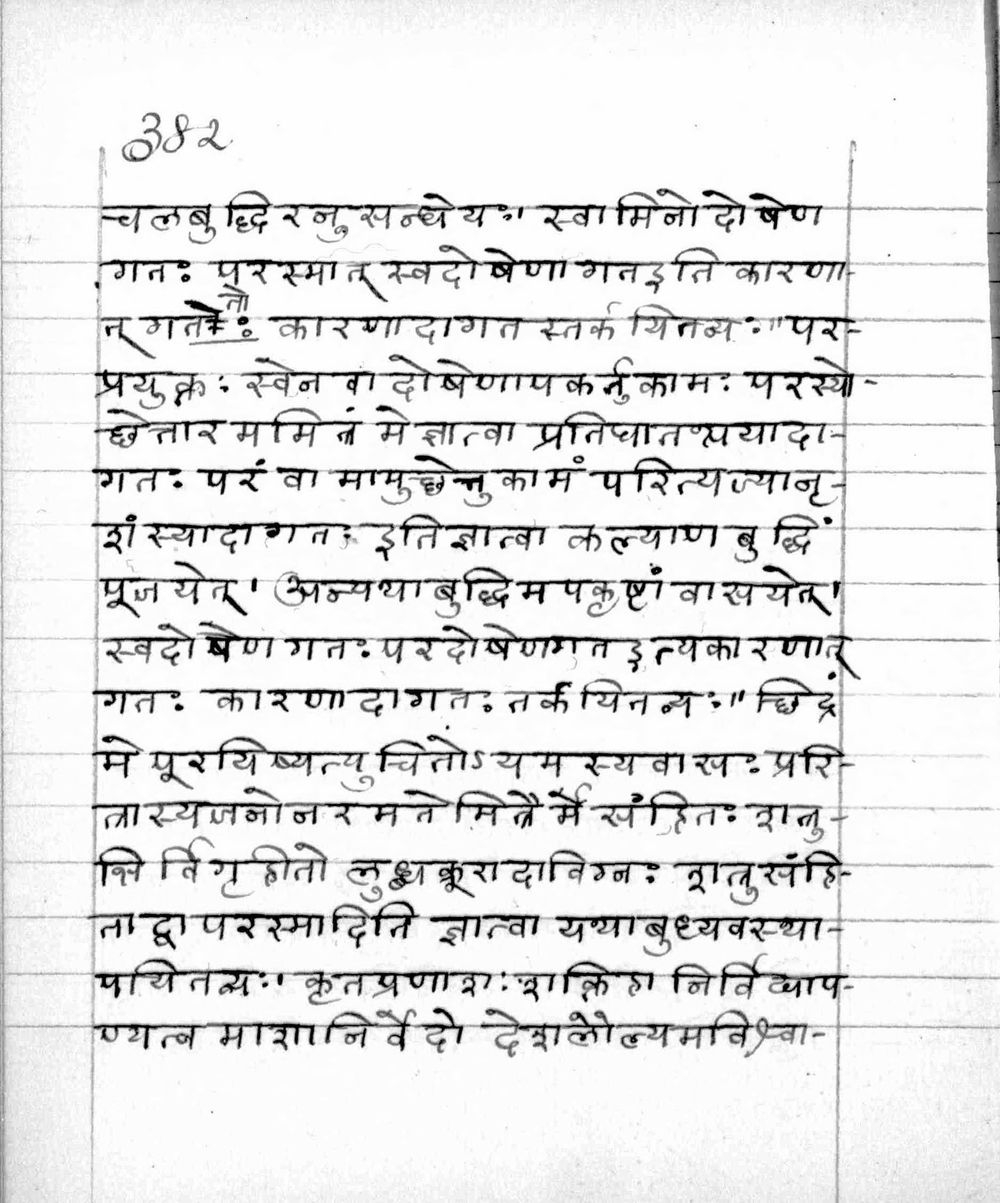 ३४२
चलबुद्धिरनुसन्धेयः" स्वामिनो दोषेण
गतः परस्मात् स्वदोषेणागत इति कारणा-
त् गतो कारणादागत स्तर्कयितव्यः" पर-
प्रयुक्तः स्वेन वा दोषेणापकर्तुकामः परस्यो-
छेत्तारममित्रं मे ज्ञात्वा प्रतिघातभयादा-
गतः परं वा मामुछेत्तुकामं परित्यज्यानृ-
शंस्यादागतः इति ज्ञात्वा कल्याणबुद्धिं
पूजयेत्। अन्यथाबुद्धिमपकृष्टां वासयेत्।
स्वदोषेण गतः परदोषेणगत इत्यकारणात्
गतः कारणादागतः तर्कयितव्यः" च्छिद्रं
मे पूरयिष्यत्युचितोऽयमस्यवासः परि-
त्रास्यजनो न रमते मित्रैर्मे संहितः शत्रु-
भिर्विगृहीतो लुब्धक्रूरादाविग्नः शत्रुसंहि-
ताद्वा परस्मादिति ज्ञात्वा यथाबुध्यवस्था-
पयितव्यः। कृतप्रणाशः शक्तिहानिर्विद्याप-
ण्यत्वमाशानिर्वेदो देशलौल्यमविश्वा-